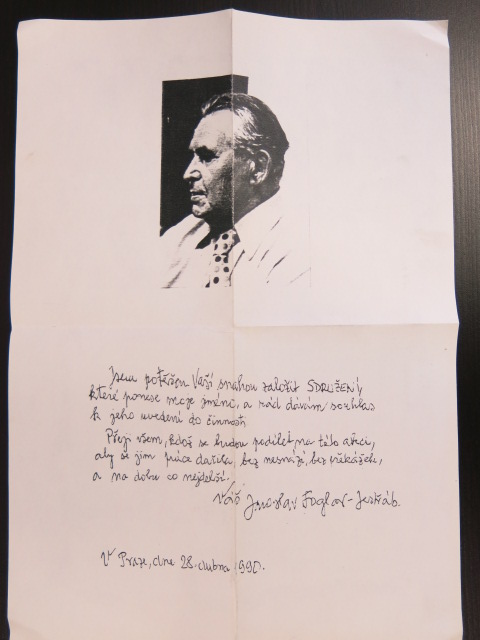 Jsem potěšen Vaší snahou založit SDRUŽENÍ,
které ponese moje jméno, a rád dávám souhlas
k jeho uvedení do činnosti
Přeji všem, kdož se budou podílet na této akci,
aby se jim práce dařila, bez nesnází, bez překážek,
a na dobu co nejdelší.
Váš Jaroslav Foglar-Jestřáb.
V Praze, dne 28. dubna 1990.